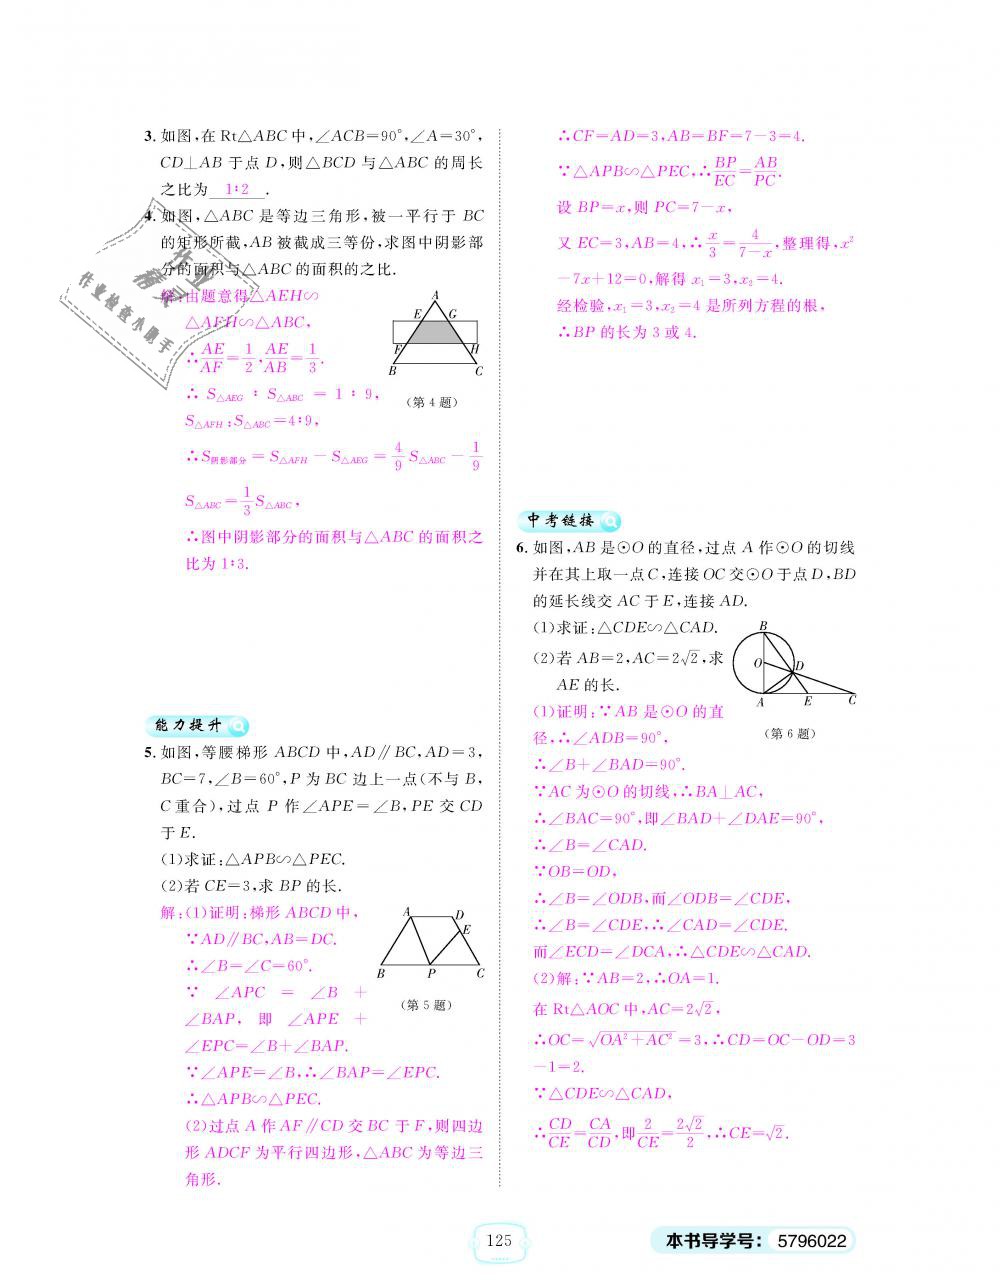 3. 如图,在 Rt△ABC 中,∠ACB=90°,∠A=30°,
CD⊥AB 于点 D,则△BCD 与△ABC 的周长
之比为 1∶2 .
4. 如图,△ABC 是等边三角形,被一平行于 BC
的矩形所截,AB 被截成三等份,求图中阴影部
分的面积与△ABC 的面积的之比.
解:由题意得△AEH∽
△AFH∽△ABC,
∴AE/AF=1/2,AE/AB=1/3.
∴ S△AEG ∶ S△ABC = 1 ∶ 9,
S△AFH∶S△ABC=4∶9,
∴S阴影部分 = S△AFH − S△AEG = 4/9 S△ABC − 1/9
S△ABC=1/3 S△ABC,
∴图中阴影部分的面积与△ABC 的面积之
比为 1∶3.
A
E G
F H
B C
(第 4 题)
作业
精灵
作业检查小助手
能力提升
5. 如图,等腰梯形 ABCD 中,AD∥BC,AD=3,
BC=7,∠B=60°,P 为 BC 边上一点(不与 B,
C 重合),过点 P 作∠APE=∠B,PE 交 CD
于 E.
(1)求证:△APB∽△PEC.
(2)若 CE=3,求 BP 的长.
解:(1)证明:梯形 ABCD 中,
∵AD∥BC,AB=DC.
∴∠B=∠C=60°.
∵ ∠APC = ∠B +
∠BAP, 即 ∠APE +
∠EPC=∠B+∠BAP.
∵∠APE=∠B,∴∠BAP=∠EPC.
∴△APB∽△PEC.
(2)过点 A 作 AF∥CD 交 BC 于 F,则四边
形 ADCF 为平行四边形,△ABC 为等边三
角形.
A D
E
B P C
(第 5 题)
∴CF=AD=3,AB=BF=7−3=4.
∵△APB∽△PEC,∴BP/EC=AB/PC.
设 BP=x,则 PC=7−x,
又 EC=3,AB=4,∴x/3=4/(7−x),整理得,x²
−7x+12=0,解得 x₁=3,x₂=4.
经检验,x₁=3,x₂=4 是所列方程的根,
∴BP 的长为 3 或 4.
中考链接
6. 如图,AB 是⊙O 的直径,过点 A 作⊙O 的切线
并在其上取一点 C,连接 OC 交⊙O 于点 D,BD
的延长线交 AC 于 E,连接 AD.
(1)求证:△CDE∽△CAD.
(2)若 AB=2,AC=2√2,求
AE 的长.
B
O D
A E C
(第 6 题)
(1)证明:∵AB 是⊙O 的直
径,∴∠ADB=90°,
∴∠B+∠BAD=90°.
∵AC 为⊙O 的切线,∴BA⊥AC,
∴∠BAC=90°,即∠BAD+∠DAE=90°,
∴∠B=∠CAD.
∵OB=OD,
∴∠B=∠ODB,而∠ODB=∠CDE,
∴∠B=∠CDE,∴∠CAD=∠CDE.
而∠ECD=∠DCA,∴△CDE∽△CAD.
(2)解:∵AB=2,∴OA=1.
在 Rt△AOC 中,AC=2√2,
∴OC=√(OA²+AC²)=3,∴CD=OC−OD=3
−1=2.
∵△CDE∽△CAD,
∴CD/CE=CA/CD,即2/CE=2√2/2,∴CE=√2.
125
本书导学号: 5796022